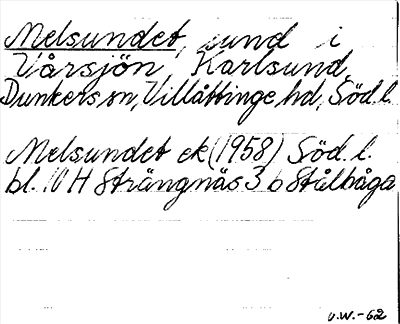 Melsundet, sund i
Vårsjön, Karlsund,
Dunkers sn, Villåttinge hd, Söd. l.
Melsundet ek (1958) Söd. l.
bl. 10 H Strängnäs 3 b Stålbåga
U.W.-62